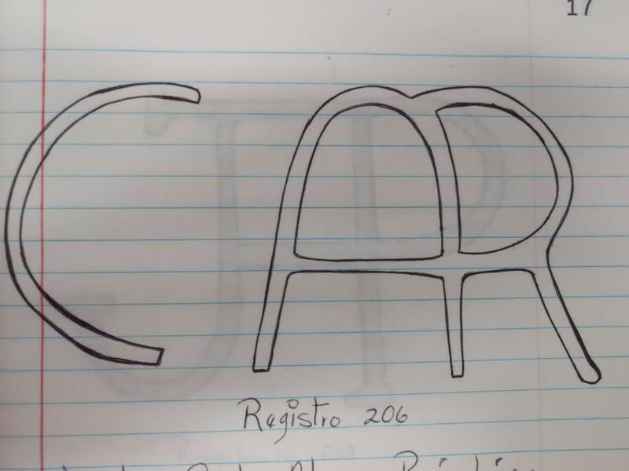 17
CAR
Registro 206